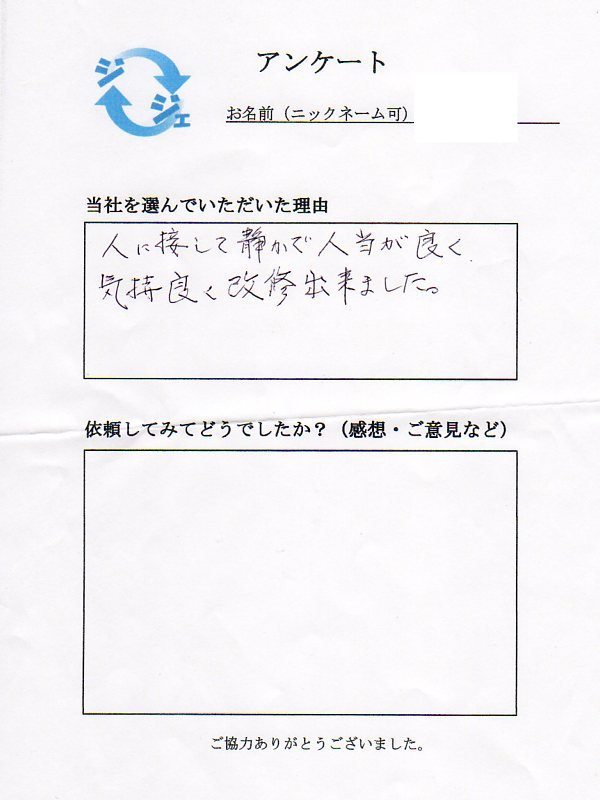 ジジェ
アンケート
お名前（ニックネーム可）
当社を選んでいただいた理由
人に接して静かで人当が良く
気持良く改修出来ました。
依頼してみてどうでしたか？（感想・ご意見など）
ご協力ありがとうございました。